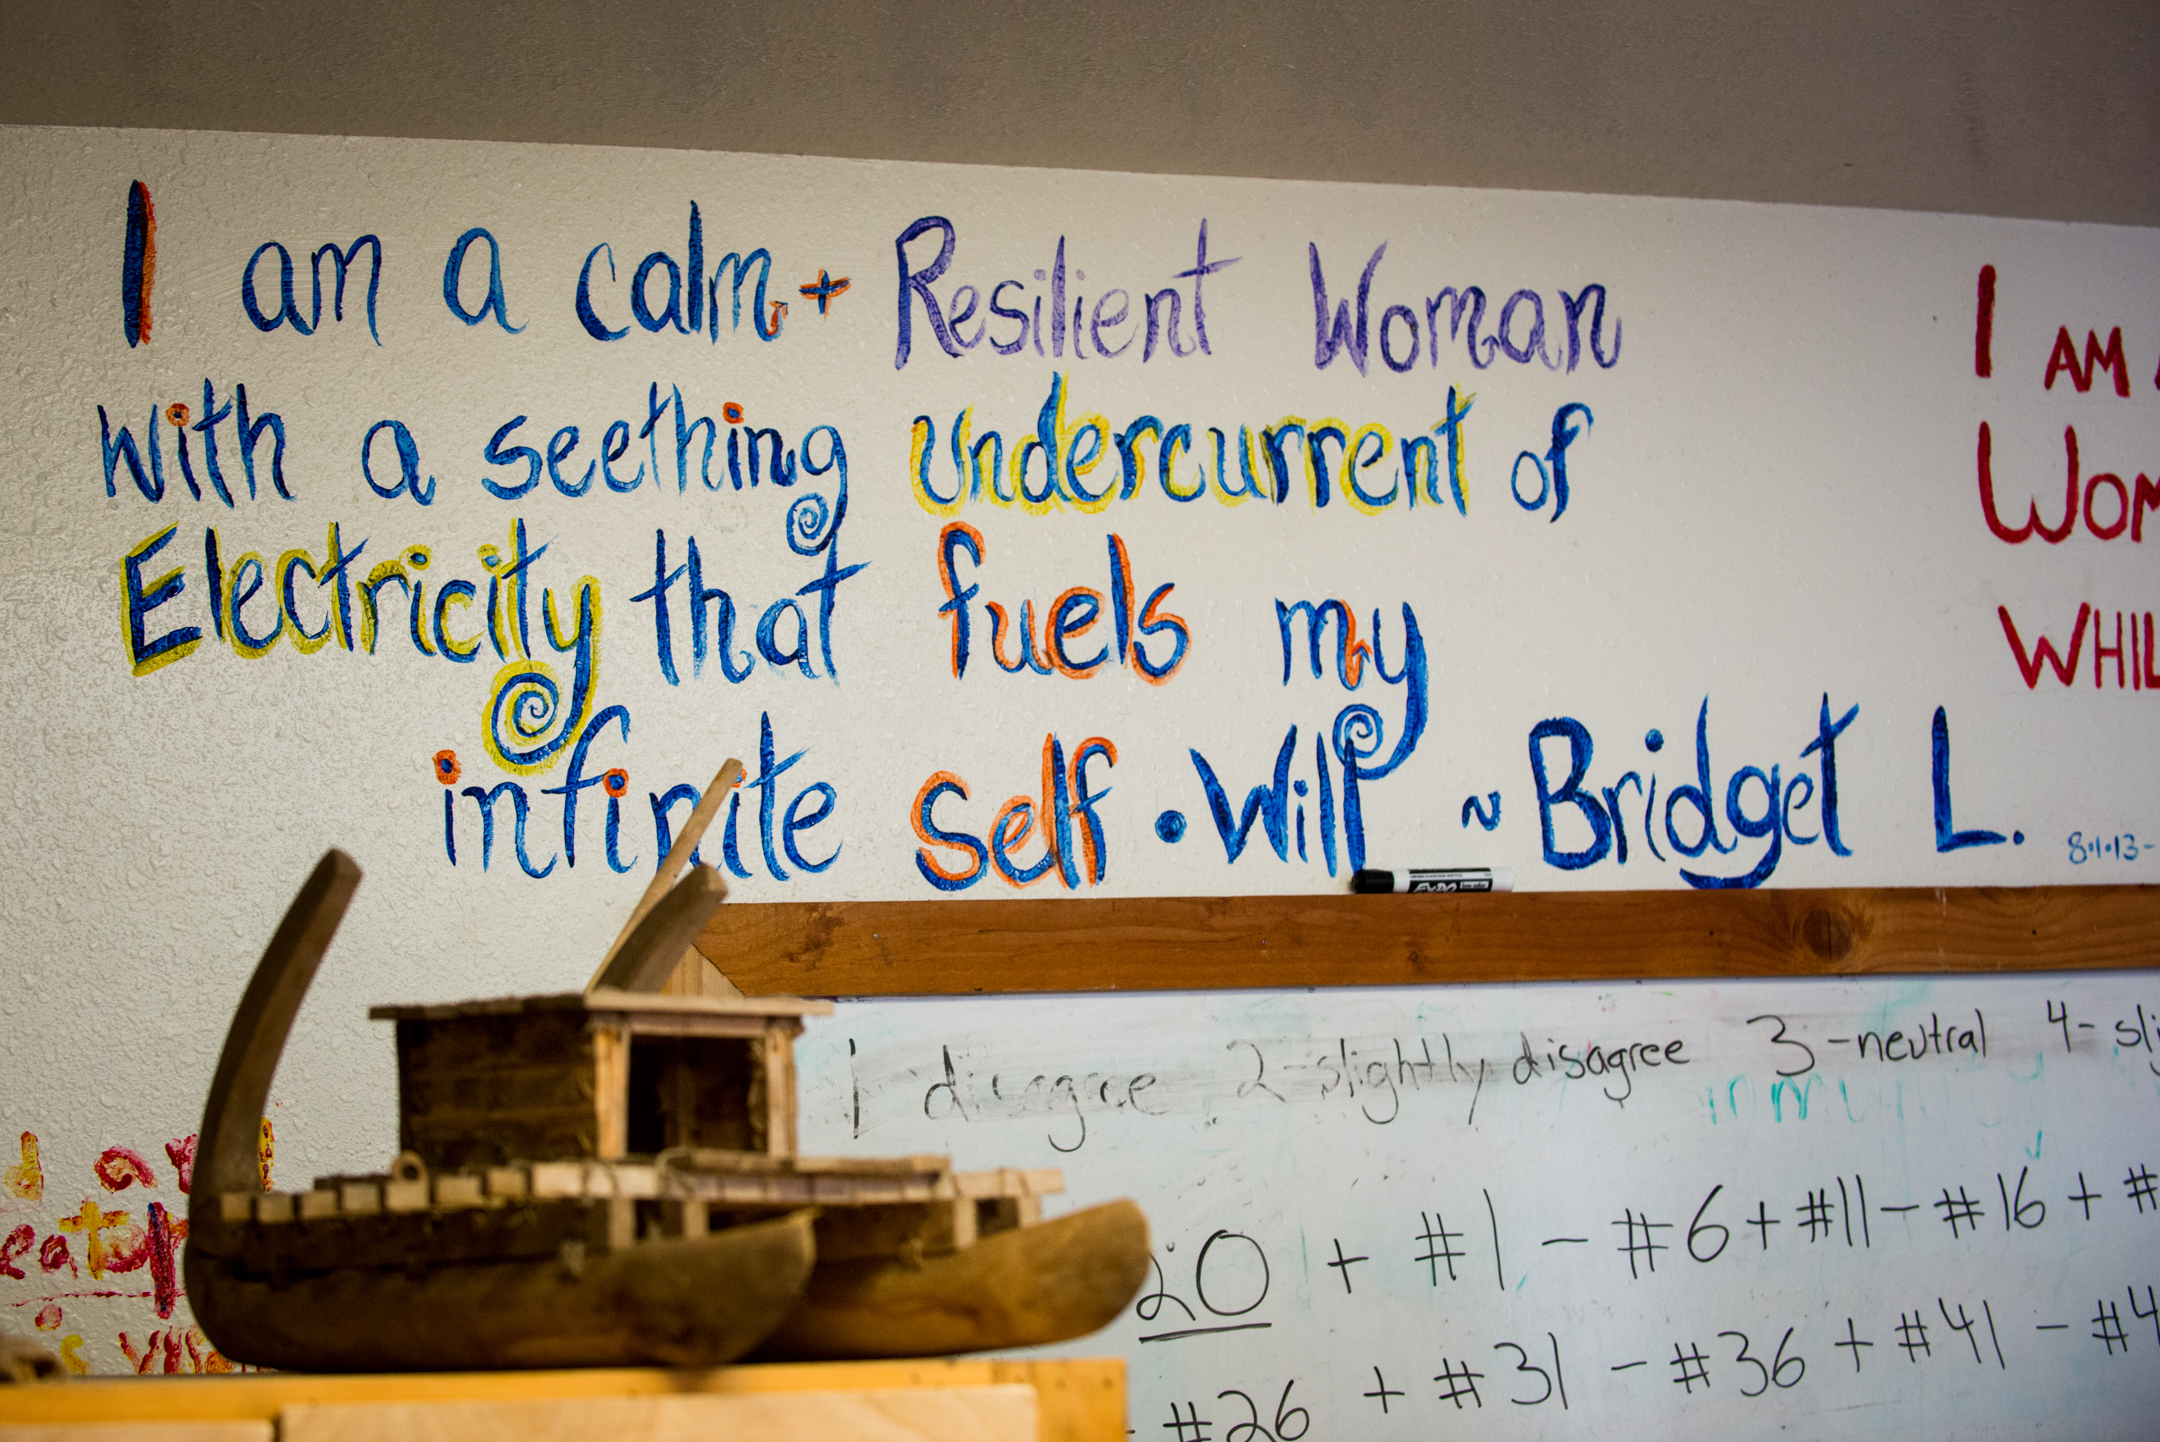 I am a calm + Resilient Woman
with a seething undercurrent of
Electricity that fuels my
infinite Self • Will ~ Bridget L.
8•1•13-
I AM
WOM
WHIL
EXPO
1 disagree 2-slightly disagree 3-neutral 4-sli
20 + #1 - #6 + #11 - #16 + #
#26 + #31 - #36 + #41 - #4